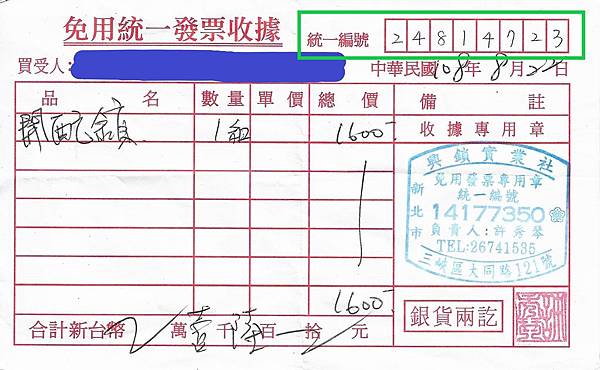 免用統一發票收據
統一編號 24814723
買受人:
中華民國108年8月22日
品名 數量 單價 總價 備註
開配鎖 1組 1600
收據專用章
興鎖實業社
免用發票專用章
統一編號
新北市 14177350
負責人:許秀琴
TEL:26741535
三峽區大同路121號
1600
合計新台幣 萬壹千陸百 拾 元
銀貨兩訖